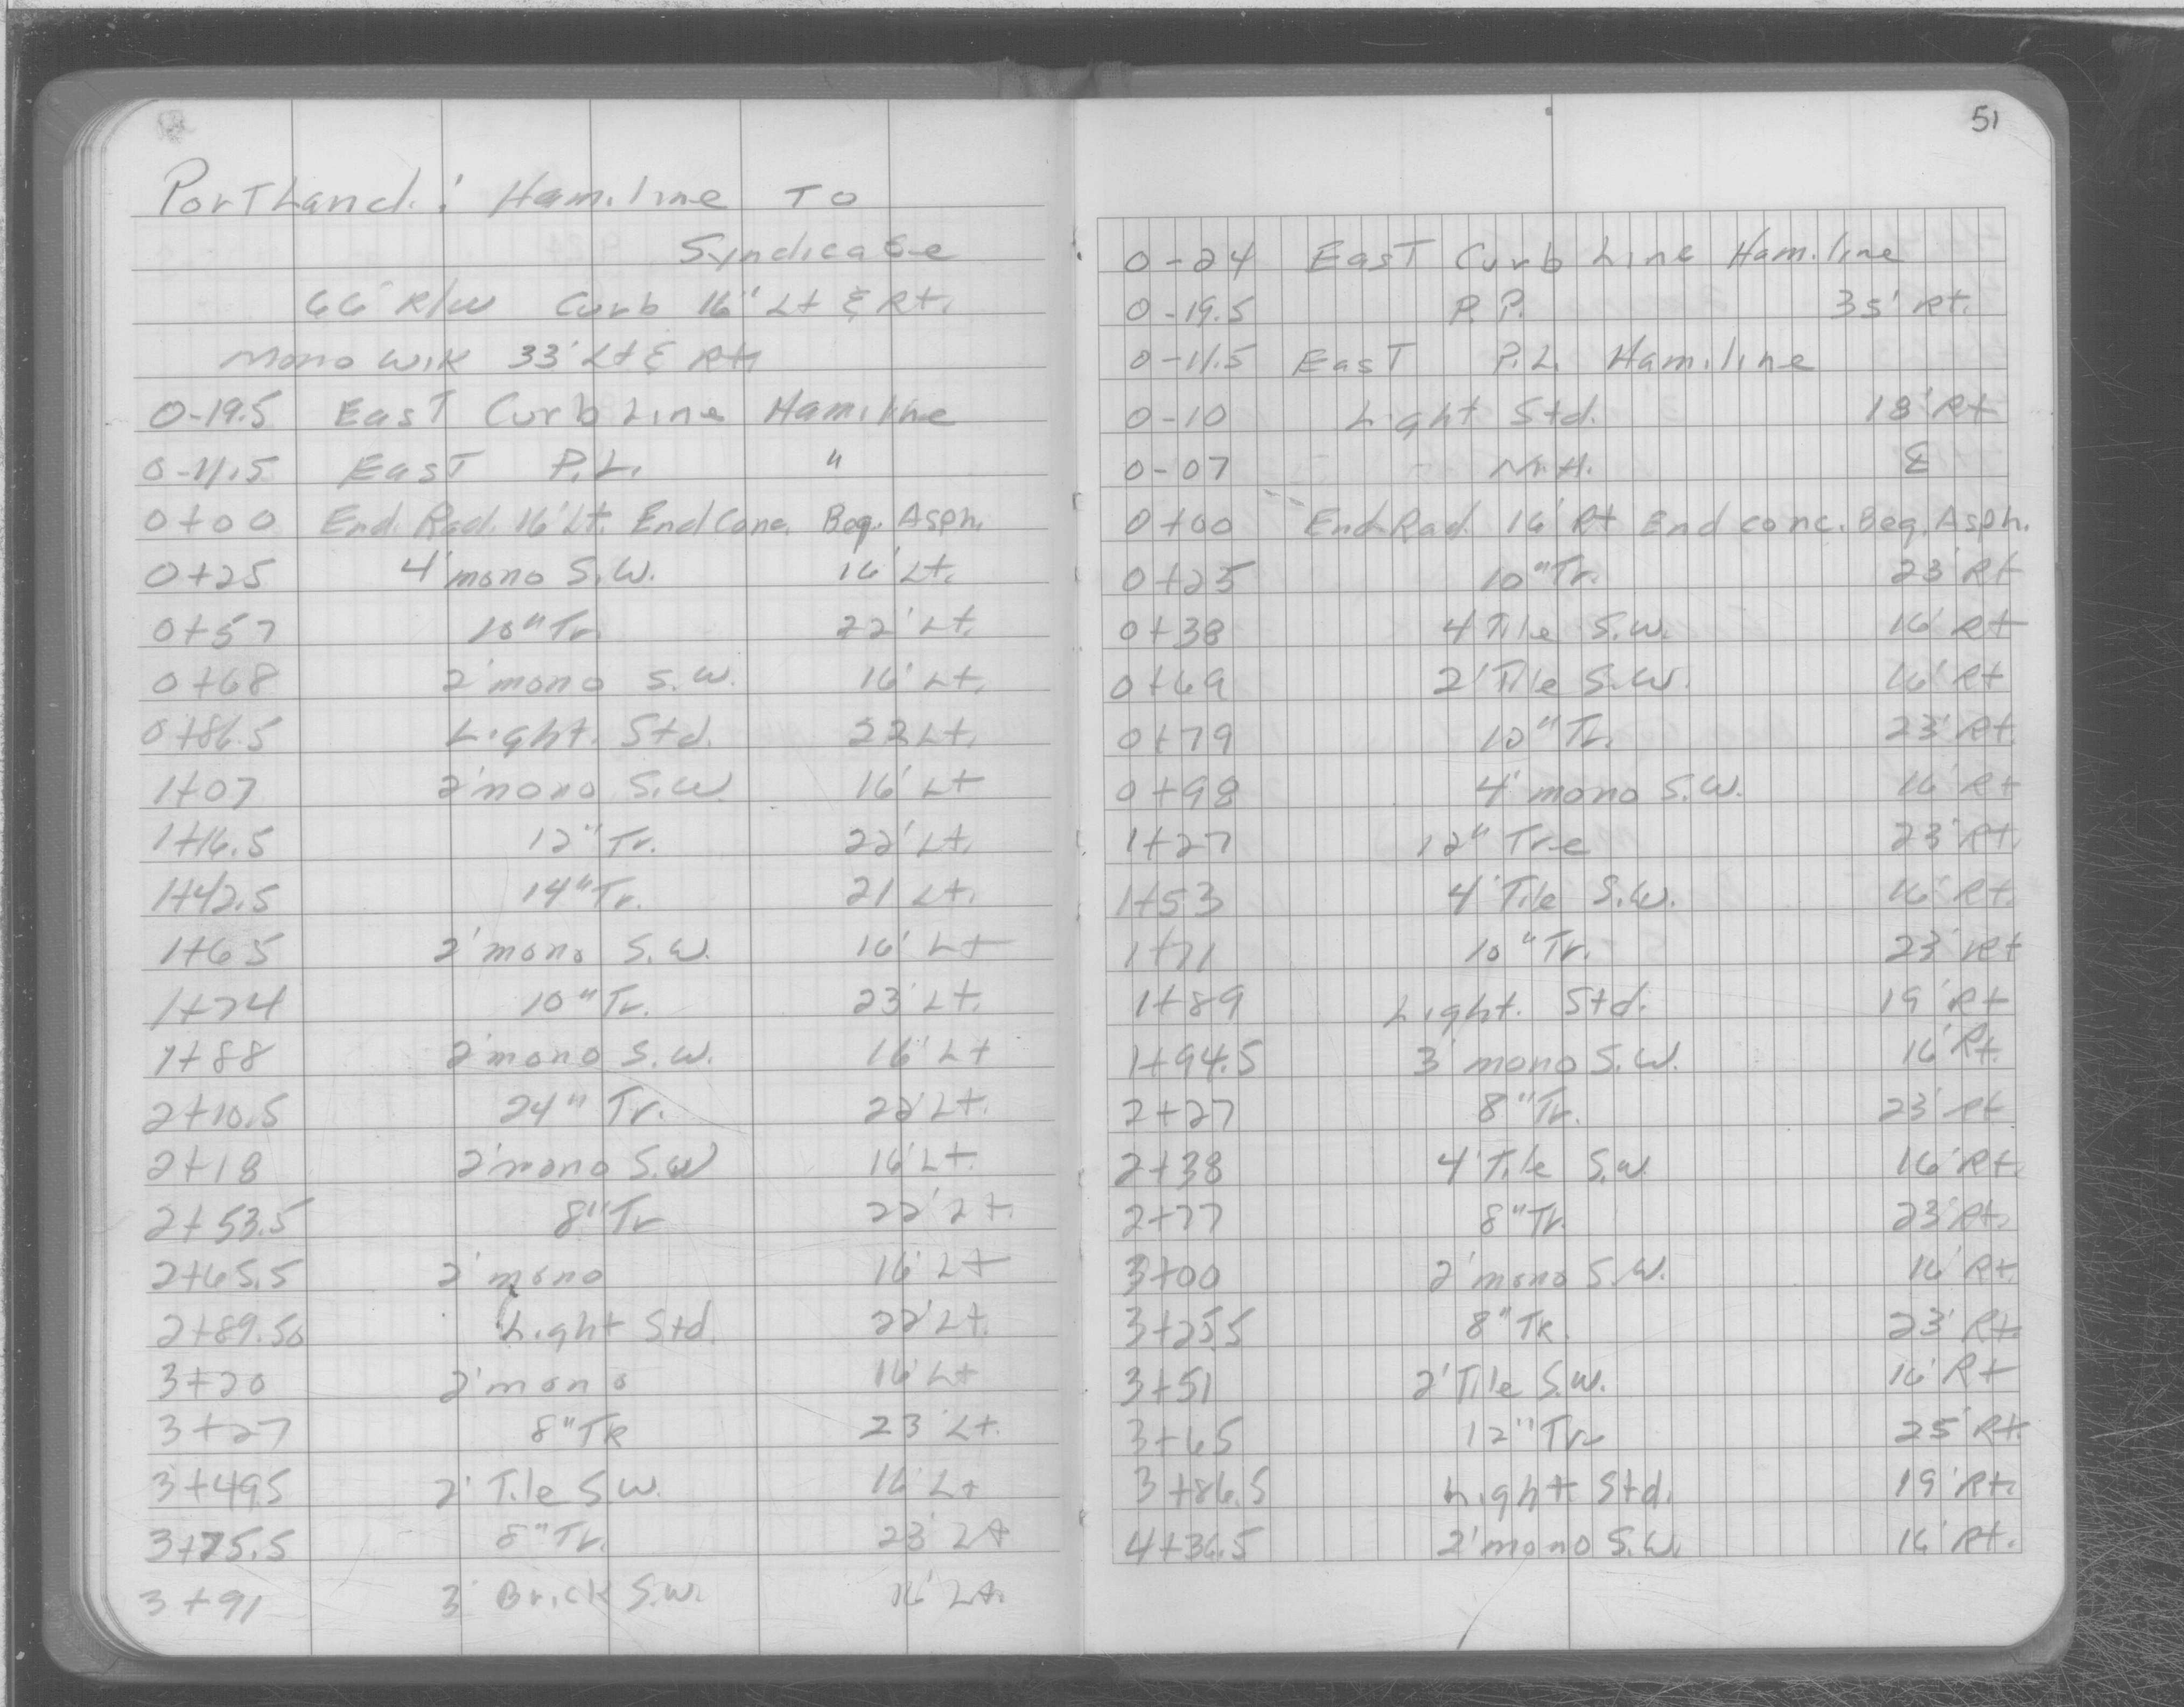 Portland: Hamline To
Syndicate
66' R/W Curb 16' Lt & Rt.
Mono Wlk 33' Lt & Rt.
0-19.5 East Curb Line Hamline
0-11.5 East P.L. "
0+00 End. Rad. 16' Lt. End Conc. Beg. Asph.
0+25 4' mono S.W. 16' Lt.
0+57 10" Tr. 22' Lt.
0+68 2' mono S.W. 16' Lt.
0+86.5 Light. Std. 22 Lt.
1+07 2' mono S.W. 16' Lt
1+16.5 12" Tr. 22' Lt.
1+42.5 14" Tr. 21 Lt.
1+65 2' mono S.W. 16' Lt
1+74 10" Tr. 23' Lt.
1+88 2' mono S.W. 16' Lt
2+10.5 24" Tr. 22' Lt.
2+18 2' mono S.W 16' Lt.
2+53.5 8" Tr 22' Lt.
2+65.5 2' mono 16' Lt
2+89.50 Light Std. 22' Lt.
3+20 2' mono 16' Lt
3+27 8" TR 23' Lt.
3+49.5 2' Tile S.W. 16' Lt
3+75.5 8" Tr. 23' Lt
3+91 3' Brick S.W. 16' Lt.
51
0-24 East Curb Line Hamline
0-19.5 P.P. 35' Rt.
0-11.5 East P.L. Hamline
0-10 Light Std. 18' Rt
0-07 M.H. ℄
0+00 End Rad. 16' Rt End conc. Beg. Asph.
0+25 10" Tr. 23' Rt
0+38 4 Tile S.W. 16' Rt
0+69 2' Tile S.W. 16' Rt
0+79 10" Tr. 23' Rt.
0+98 4' mono S.W. 16' Rt
1+27 12" Tre 23' Rt.
1+53 4' Tile S.W. 16' Rt.
1+71 10" Tr. 23' Rt
1+89 Light. Std. 19' Rt
1+94.5 3' mono S.W. 16' Rt.
2+27 8" Tr. 23' Rt
2+38 4' Tile S.W 16' Rt.
2+77 8" Tr. 23' Rt.
3+00 2' mono S.W. 16' Rt.
3+25.5 8" TR. 23' Rt.
3+51 2' Tile S.W. 16' Rt
3+65 12" Tr 25' Rt.
3+86.5 Light Std. 19' Rt.
4+36.5 2' mono S.W. 16' Rt.